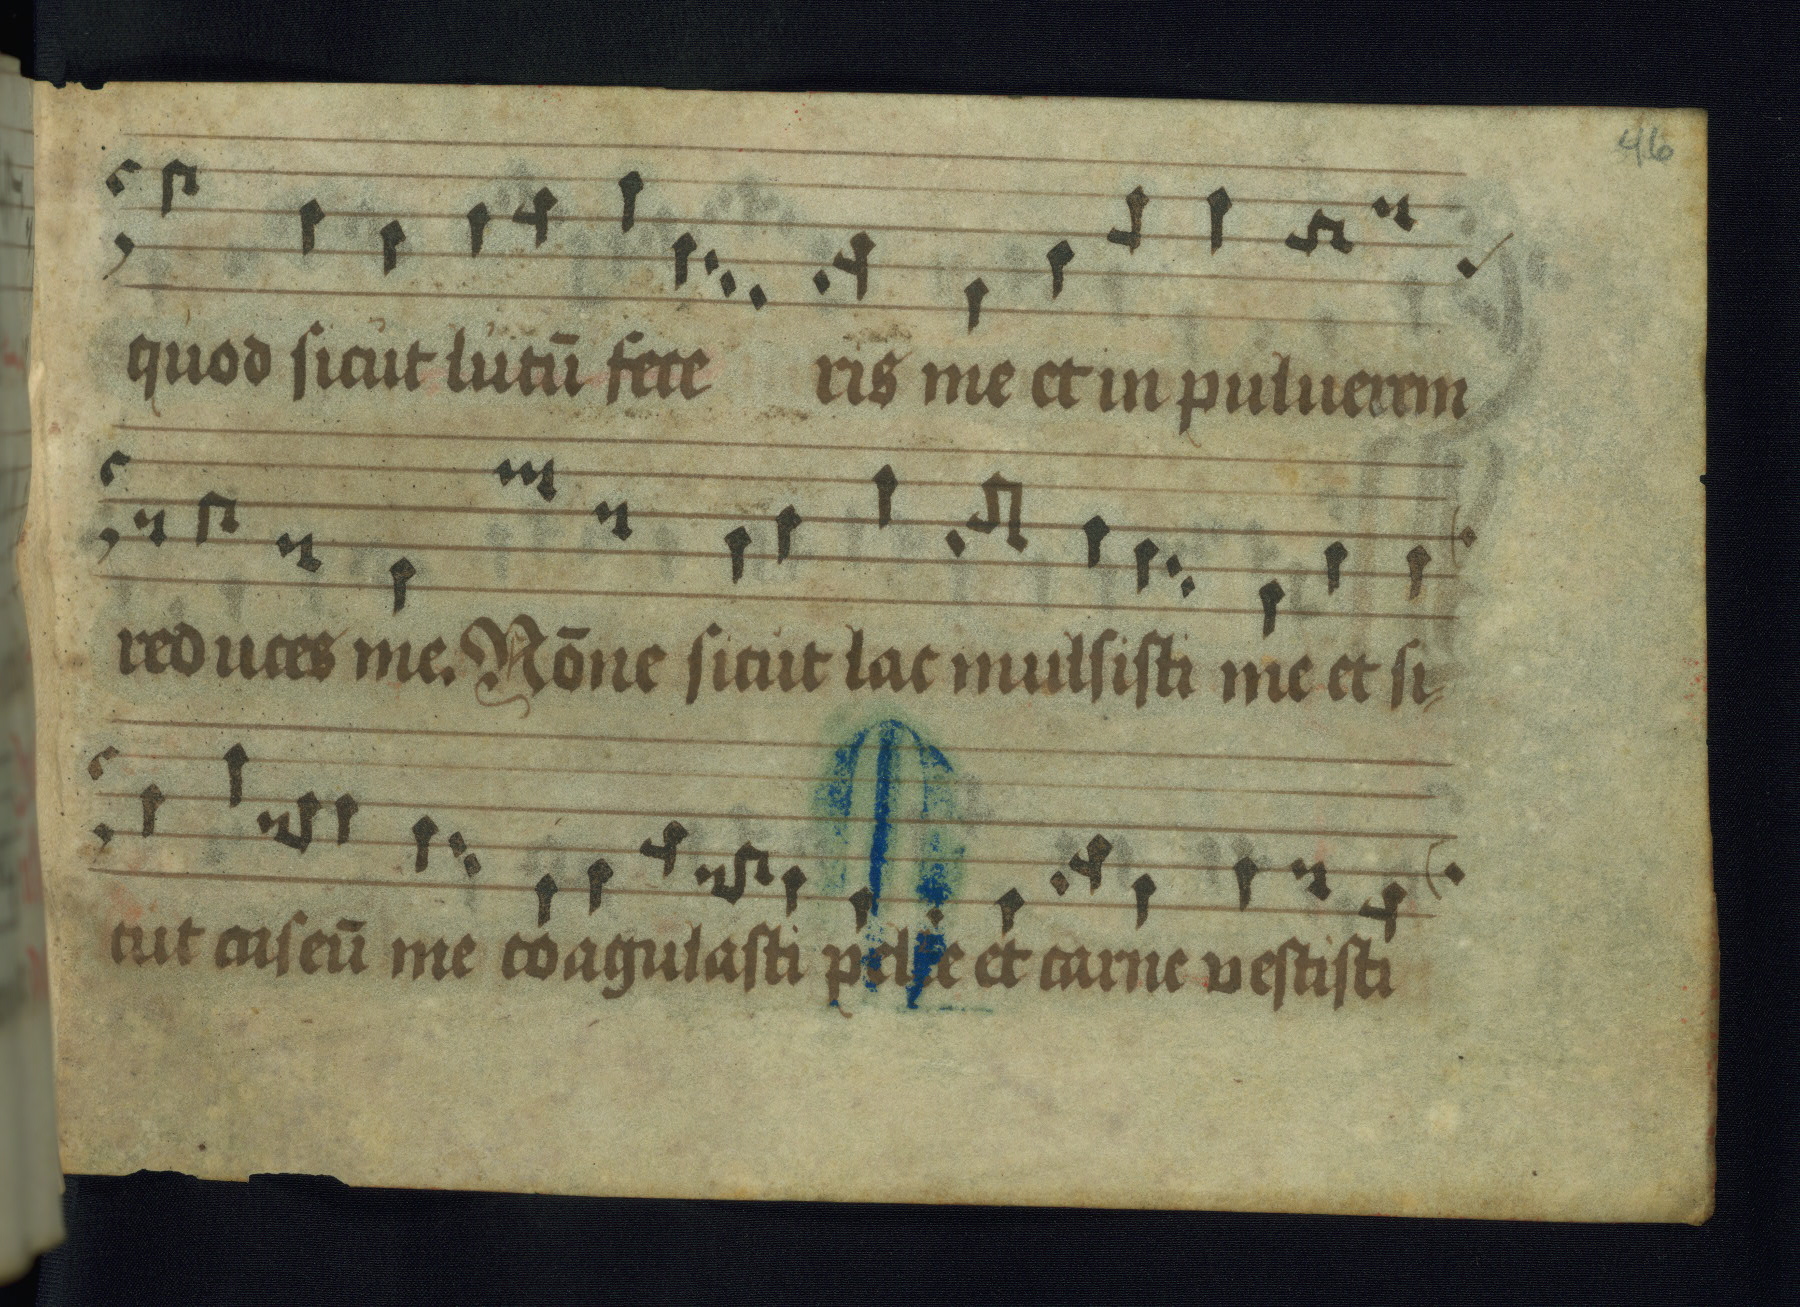 46
quod sicut lutū fece ris me et in puluerem
reduces me. Nōne sicut lac mulsisti me et si-
cut caseū me coagulasti pelle et carne vestisti